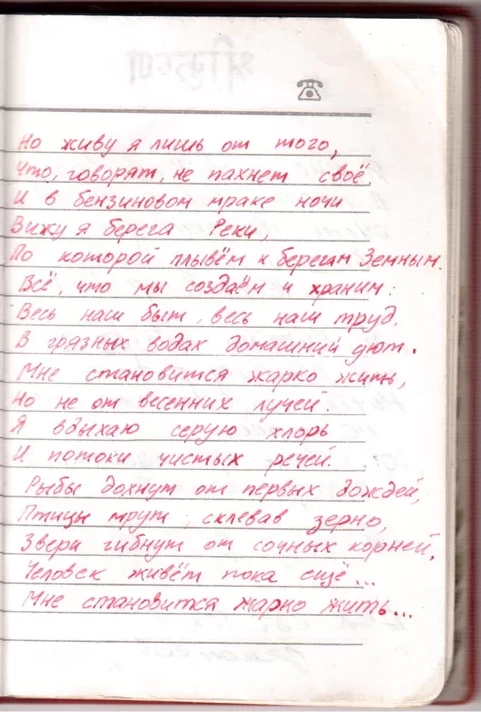 Но живу я лишь от того,
Что, говорят, не пахнет своё,
И в бензиновом мраке ночи
Вижу я берега Реки,
По которой плывём к берегам Земным.
Всё, что мы создаём и храним:
Весь наш быт, весь наш труд,
В грязных водах домашний уют.
Мне становится жарко жить,
Но не от весенних лучей.
Я вдыхаю серую хлорь
И потоки чистых речей.
Рыбы дохнут от первых дождей,
Птицы мрут, склевав зерно,
Звери гибнут от сочных корней,
Человек живём пока ещё...
Мне становится жарко жить...